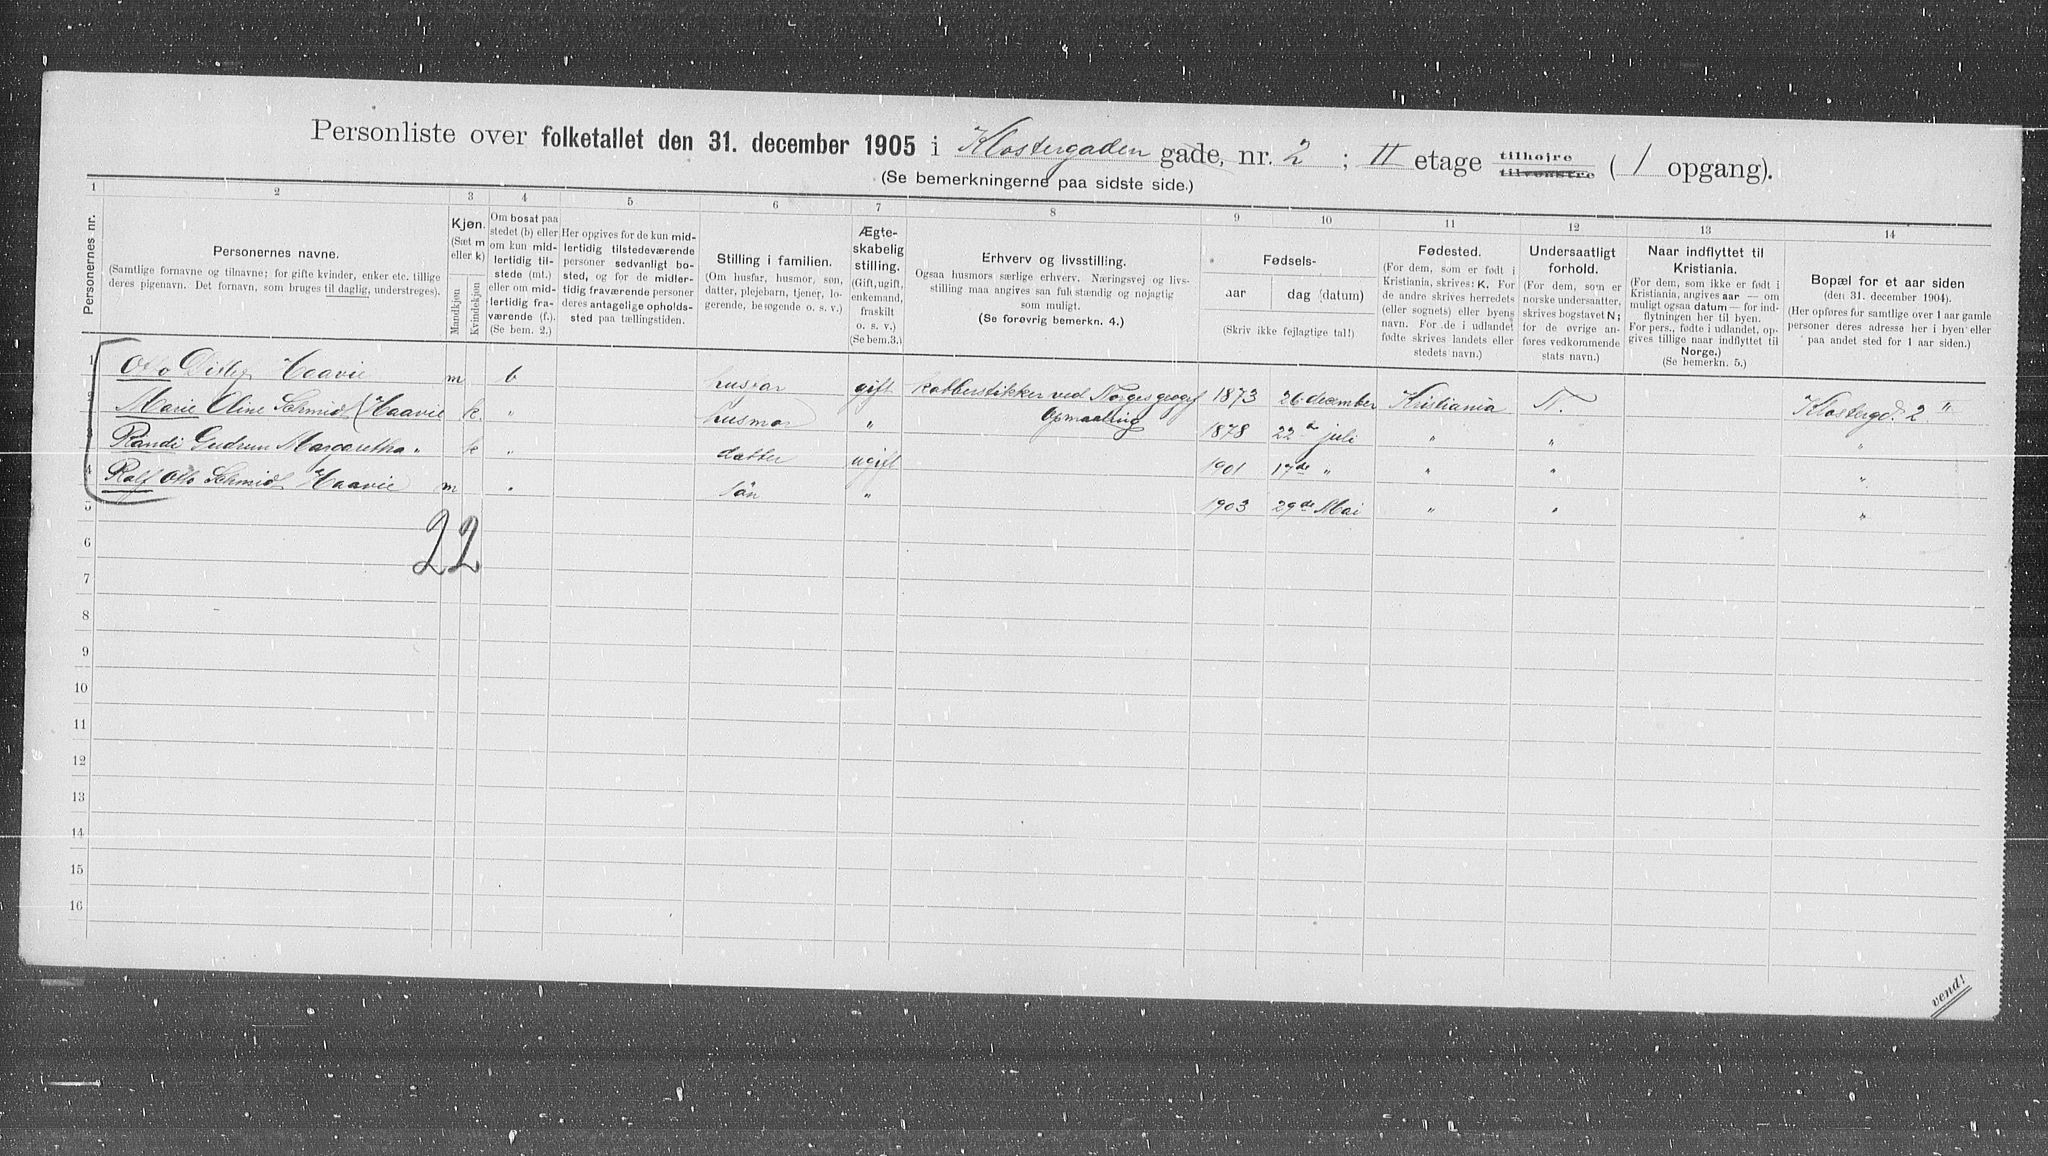 Personliste over folketallet den 31. december 1905 i Klostergaden gade, nr. 2 ; II etage tilhøjre tilvenstre ( 1 opgang).
(Se bemerkningerne paa sidste side.)
1 2 3 4 5 6 7 8 9 10 11 12 13 14
Personernes nr.
Personernes navne.
(Samtlige fornavne og tilnavne; for gifte kvinder, enker etc. tillige
deres pigenavn. Det fornavn, som bruges til daglig, understreges).
Kjøn.
(Sæt m
eller k)
Mandkjøn
Kvindekjøn
Om bosat paa
stedet (b) eller
om kun mid-
lertidig til-
stede (mt.)
eller om mid-
lertidig fra-
værende (f.).
(Se bem. 2.)
Her opgives for de kun mid-
lertidig tilstedeværende
personer sedvanligt bo-
sted, og for de midler-
tidig fraværende personer
deres antagelige opholds-
sted paa tællingstiden.
Stilling i familien.
(Om husfar, husmor, søn,
datter, plejebarn, tjener, lo-
gerende, besøgende o. s. v.)
Ægte-
skabelig
stilling.
(Gift, ugift,
enkemand,
fraskilt
o. s. v.)
(Se bem.3.)
Erhverv og livsstilling.
Ogsaa husmors særlige erhverv. Næringsvej og livs-
stilling maa angives saa fuldstændig og nøjagtig
som muligt.
(Se forøvrig bemerkn. 4.)
Fødsels-
aar
dag (datum)
(Skriv ikke fejlagtige tal!)
Fødested.
(For dem, som er født i
Kristiania, skrives: K. For
de andre skrives herredets
(eller sognets) eller byens
navn. For de i udlandet
fødte skrives landets eller
stedets navn.)
Undersaatligt
forhold.
(For dem, som er
norske undersaatter,
skrives bogstavet N;
for de øvrige an-
føres vedkommende
stats navn.)
Naar indflyttet til
Kristiania.
(For dem, som ikke er født i
Kristiania, angives aar — om
muligt ogsaa datum — for ind-
flytningen her til byen.
For pers., fødte i udlandet, op-
gives tillige naar indflyttet til
Norge.)
(Se bemerkn. 5.)
Bopæl for et aar siden
(den 31. december 1904).
(Her opføres for samtlige over 1 aar gamle
personer deres adresse her i byen eller
paa andet sted for 1 aar siden.)
1 Otto Haavie m b husfar gift kobberstikker ved Norges geogrf Opmaaling 1873 26 december Kristiania N. Klostergd. 2 "
2 Marie Oline Schmidt (Haavie k " husmor " 1878 22 de juli " " "
3 Randi Gudrun Margaretha " k " datter ugift 1901 17de " " " "
4 Rolf Otto Schmidt Haavie m " sön " 1903 29de Mai " " "
5
22
6
7
8
9
10
11
12
13
14
15
16
vend!